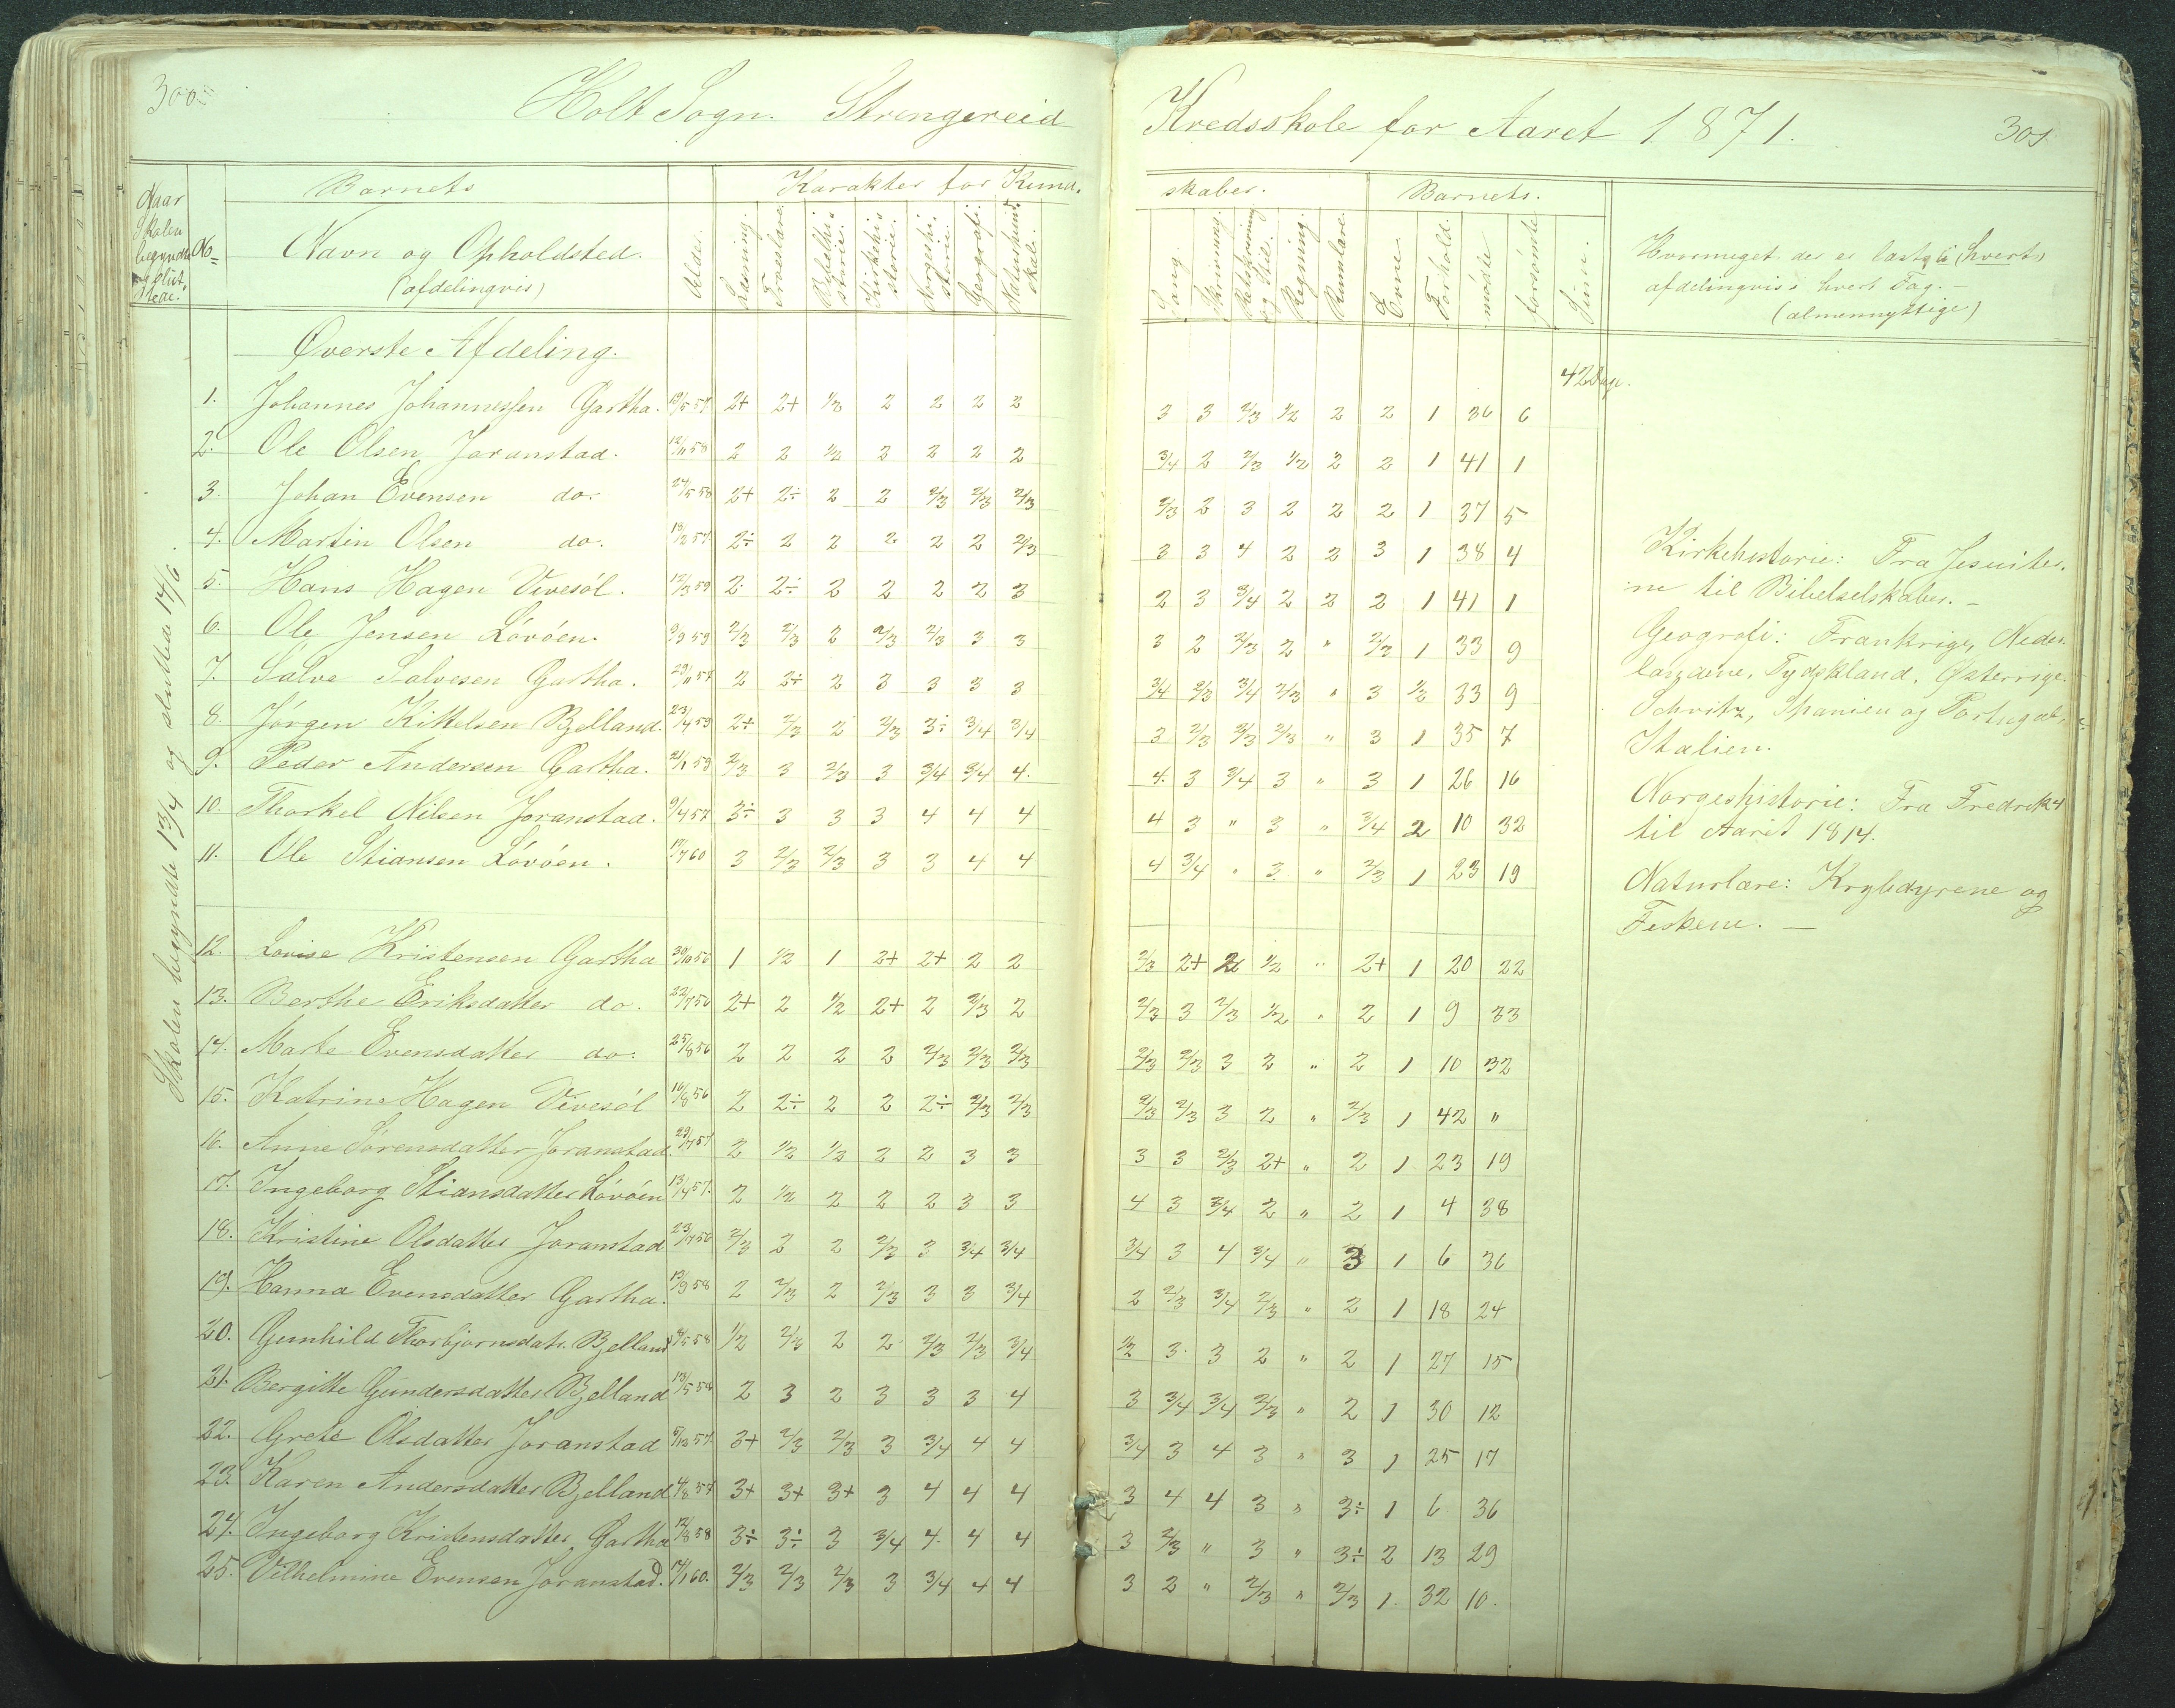 300
Holt Sogn. Strengereid
Kredsskole for Aaret 1871.
301
Naar Skolen begyndte og sluttede.
No
Barnets
Navn og Opholdsted.
(afdelingvis)
Alder.
Karakter for Kund-
Læsning.
Troeslære.
Bibelhistorie.
Kirkehistorie.
Norgeshistorie.
Geografi.
Naturkundskab.
skaber.
Sang.
Skrivning.
Retskrivning og Stil.
Regning.
Rumlære.
Barnets.
Evne
Forhold.
mødte
forsømte
Hvormeget der er læst i (hvert)
afdelingvis i hvert Fag. —
(almennyttige)
Skolen begyndte 13/4 og sluttede 14/6.
Øverste Afdeling.
42 Dage.
1. Johannes Johannessen Gartha. 19/5 57 2+ 2+ 1/2 2 2 2 2 3 3 2/3 1/2 2 2 1 36 6
2. Ole Olsen Joranstad. 12/11 58 2 2 1/2 2 2 2 2 3/4 2 2/3 1/2 2 2 1 41 1
3. Johan Evensen do. 24/5 58 2+ 2÷ 2 2 2/3 2/3 2/3 2/3 2 3 2 2 2 1 37 5
4. Martin Olsen do. 2÷ 2 2 2 2 2 2/3 3 3 4 2 2 3 1 38 4
5. Hans Hagen Vivesøl. 12/3 59 2 2÷ 2 2 2 2 3 2 3 3/4 2 2 2 1 41 1
6. Ole Jensen Løvøen. 9/9 59 2/3 2/3 2 2/3 2/3 3 3 3 2 2/3 2 " 2/3 1 33 9
7. Salve Salvesen Gartha. 29/11 57 2 2÷ 2 3 3 3 3 3/4 2/3 3/4 2/3 " 3 1/2 33 9
8. Jørgen Kittelsen Bjelland. 23/4 59 2+ 2/3 2 2/3 3÷ 3/4 3/4 3 2/3 2/3 2/3 " 3 1 35 7
9. Peder Andersen Gartha. 21/1 59 2/3 3 2/3 3 3/4 3/4 4. 4. 3 3/4 3 " 3 1 26 16
10. Thorkel Nilsen Joranstad. 9/4 57 3÷ 3 3 3 4 4 4 4 3 " 3 " 3/4 2 10 32
11. Ole Stiansen Løvøen. 17/7 60 3 2/3 2/3 3 3 4 4 4 3/4 " 3 " 2/3 1 23 19
12. Lovise Kristensen Gartha 30/10 56 1 1/2 1 2+ 2+ 2 2 2/3 2+ 2 1/2 " 2+ 1 20 22
13. Berthe Eriksdatter do. 22/7 56 2+ 2 1/2 2+ 2 2/3 2 2/3 3 2/3 1/2 " 2 1 9 33
14. Marte Evensdatter do. 25/8 56 2 2 2 2 2/3 2/3 2/3 2/3 2/3 3 2 " 2 1 10 32
15. Katrine Hagen Vivesøl 16/8 56 2 2÷ 2 2 2÷ 2/3 2/3 2/3 2/3 3 2 " 2/3 1 42 "
16. Anne Sørensdatter Joranstad 29/7 57 2 1/2 1/2 2 2 3 3 3 3 2/3 2+ " 2 1 23 19
17. Ingeborg Stiansdatter Løvøen 13/4 57. 2 1/2 2 2 2 3 3 4 3 3/4 2 " 2 1 4 38
18. Kristine Olsdatter Joranstad 23/7 56 2/3 2 2 2/3 3 3/4 3/4 3/4 3 4 3/4 " 3 1 6 36
19. Hanna Evensdatter Gartha. 13/9 58 2 2/3 2 2/3 3 3 3/4 2 2/3 3/4 2/3 " 2 1 18 24
20. Gunhild Thorbjørnsdatr. Bjelland 2/5 58 1/2 2/3 2 2 2/3 2/3 3/4 1/2 3 3 2 " 2 1 27 15
21. Bergitte Gundersdatter Bjelland 13/5 58 2 3 2 3 3 3 4 3 3/4 3/4 2/3 " 2 1 30 12
22. Grete Olsdatter Joranstad 5/12 57 3+ 2/3 2/3 3 3/4 4 4 3/4 3 4 3 " 3 1 25 17
23. Karen Andersdatter Bjelland 4/8 57 3+ 3+ 3+ 3 4 4 4 3 4 4 3 " 3÷ 1 6 36
24. Ingeborg Kristensdatter Gartha 12/8 58 3÷ 3÷ 3 3/4 4. 4 4 3 2/3 " 3 " 3÷ 2 13 29
25. Vilhelmine Evensen Joranstad. 17/1 60. 2/3 2/3 2/3 3 3/4 4 4 3 2 " 2/3 " 2/3 1. 32 10.
Kirkehistorie: Fra Jesuiter-
ne til Bibelselskaber. —
Geografi: Frankrige, Neder-
landene, Tydskland, Østerrige
Schvitz, Spanien og Portugal,
Italien.
Norgeshistorie: Fra Fredrik 4
til Aaret 1814.
Naturlære: Krybdyrene og
Feskene. —